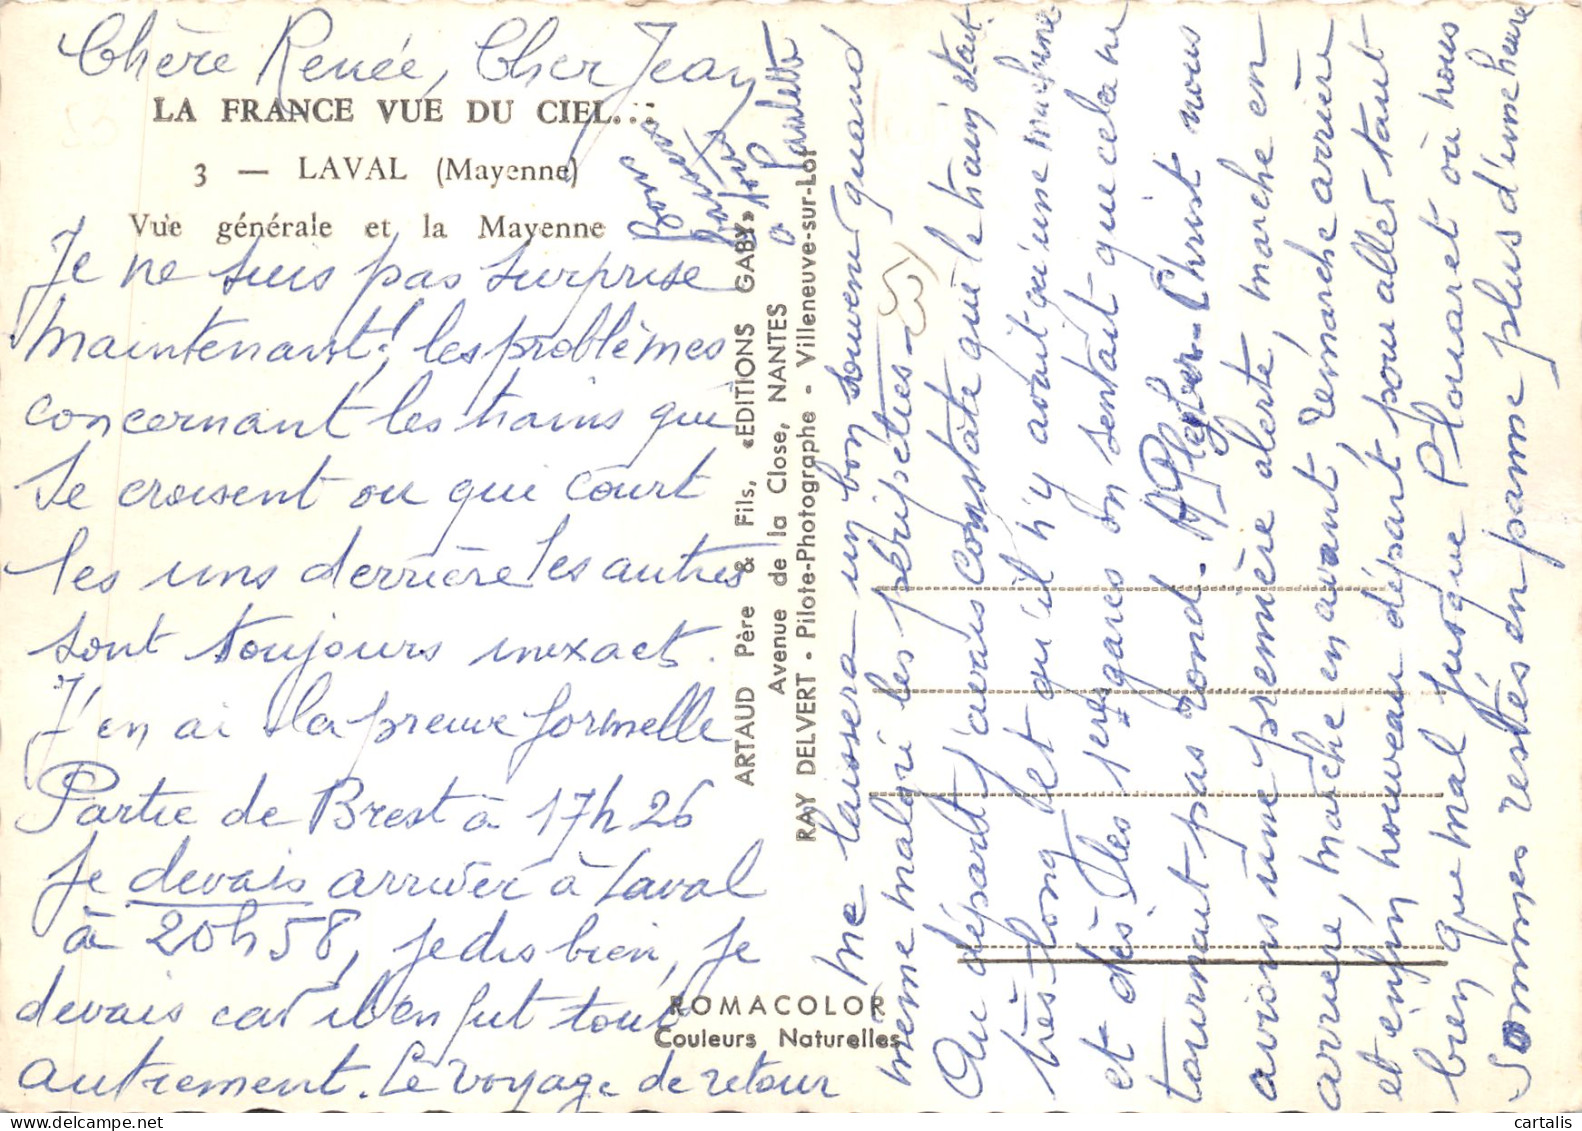 Chère Renée, Cher Jean
LA FRANCE VUE DU CIEL...
3 — LAVAL (Mayenne)
Vue générale et la Mayenne
Je ne suis pas surprise
maintenant! les problèmes
concernant les trains qui
se croisent ou qui court
les uns derrière les autres
sont toujours inexact.
J'en ai la preuve formelle
Partie de Brest à 17h26
Je devais arriver à Laval
à 20h58, je dis bien, je
devais car il en fut tout
autrement. Le voyage de retour
me laissera un bon souvenir quand
même malgré les péripéties.
Au départ j'avais constaté que le train était
très long et qu'il n'y avait qu'une machine
et dès les 1eres gares on sentait que cela ne
tournait pas rond. A Plegber-Christ nous
avions une première alerte, marche en
arrière, marche en avant, remarche arrière
et enfin nouveau départ pour aller tant
bien que mal jusque Plouaret où nous
sommes restés en panne plus d'une heure
Bons
baisers
à tous
Paulette
ARTAUD Père & Fils, «EDITIONS GABY»
Avenue de la Close, NANTES
RAY DELVERT - Pilote-Photographe - Villeneuve-sur-Lot
ROMACOLOR
Couleurs Naturelles
cartalis